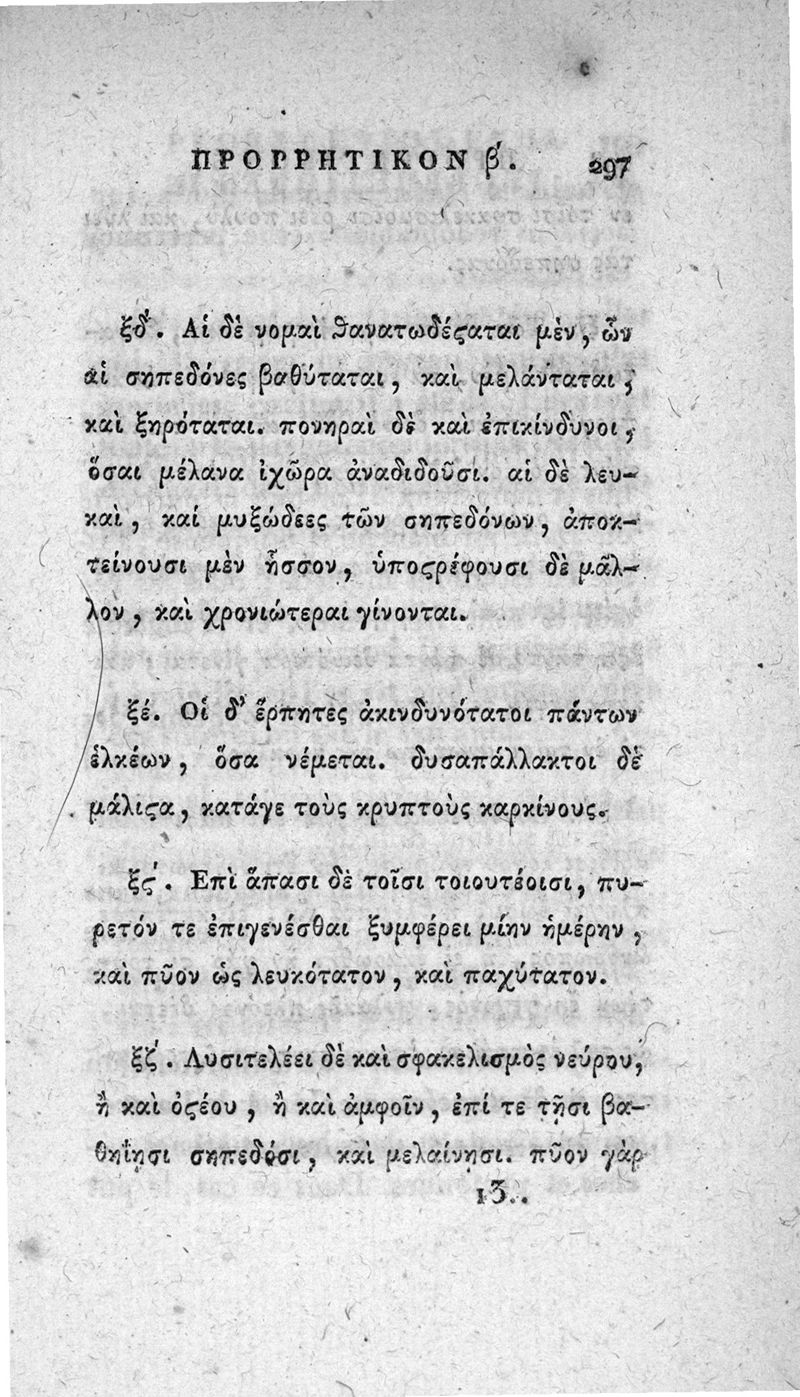 ΠΡΟΡΡΗΤΙΚΟΝ β΄. 297
ξδ΄. Αἱ δὲ νομαὶ ϑανατωδέϛαται μὲν, ὧν
αἱ σηπεδόνες βαθύταται, καὶ μελάνταται,
καὶ ξηρόταται. πονηραὶ δὲ καὶ ἐπικίνδυνοι,
ὅσαι μέλανα ἰχῶρα ἀναδιδοῦσι. αἱ δὲ λευ-
καὶ, καί μυξώδεες τῶν σηπεδόνων, ἀποκ-
τείνουσι μὲν ἧσσον, ὑποϛρέφουσι δὲ μᾶλ-
λον, καὶ χρονιώτεραι γίνονται.
ξέ. Οἱ δ' ἕρπητες ἀκινδυνότατοι πάντων
ἑλκέων, ὅσα νέμεται. δυσαπάλλακτοι δὲ
μάλιϛα, κατάγε τοὺς κρυπτοὺς καρκίνους.
ξϛ΄. Επὶ ἅπασι δὲ τοῖσι τοιουτέοισι, πυ-
ρετόν τε ἐπιγενέσθαι ξυμφέρει μίην ἡμέρην,
καὶ πῦον ὡς λευκότατον, καὶ παχύτατον.
ξζ΄. Λυσιτελέει δὲ καὶ σφακελισμὸς νεύρου,
ἢ καὶ ὀϛέου, ἢ καὶ ἀμφοῖν, ἐπί τε τῇσι βα-
θηΐῃσι σηπεδόσι, καὶ μελαίνῃσι. πῦον γὰρ
13..